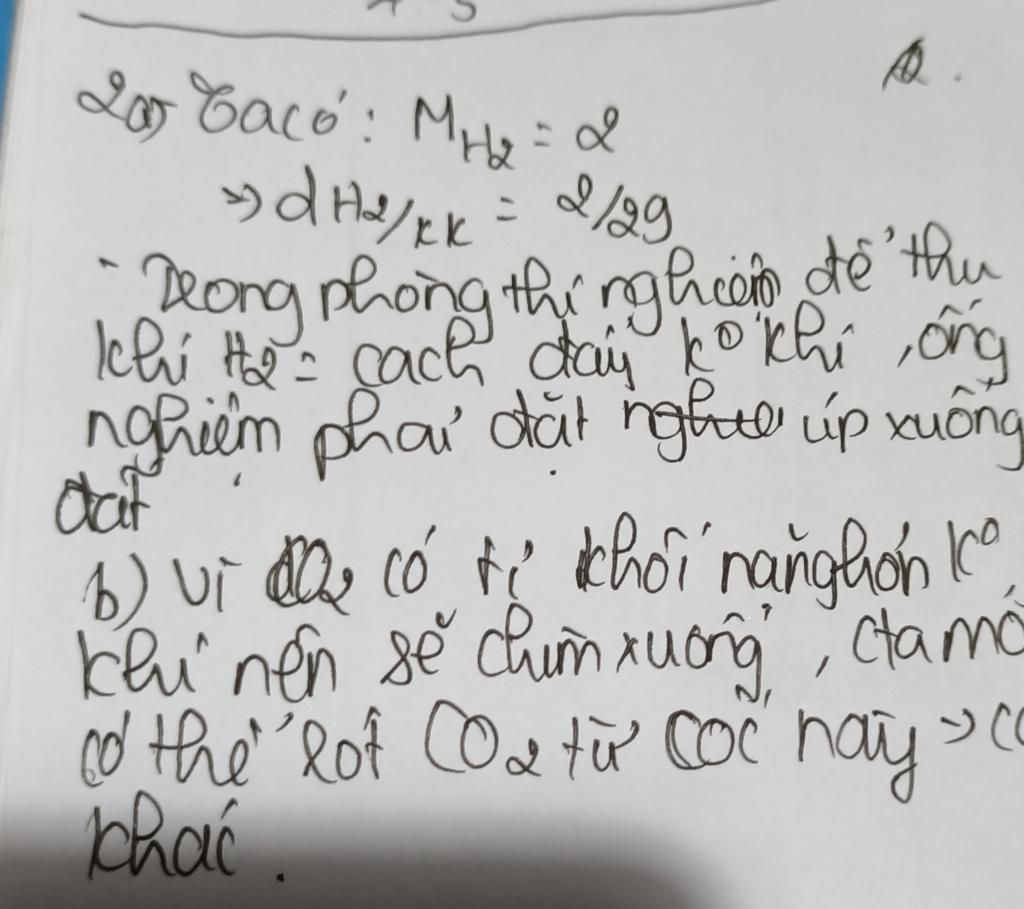 2a) Ta có: M H2 = 2
=> d H2/KK = 2/29
- Trong phòng thí nghiệm để thu
khí H2 = cach đẩy kº khí, ống
nghiệm phải đặt úp xuống
đất
b) Vì CO2 có tỉ khối nặng hơn kº
khí nên sẽ chìm xuống, ta mớ
có thể rót CO2 từ cốc này ->
khác.